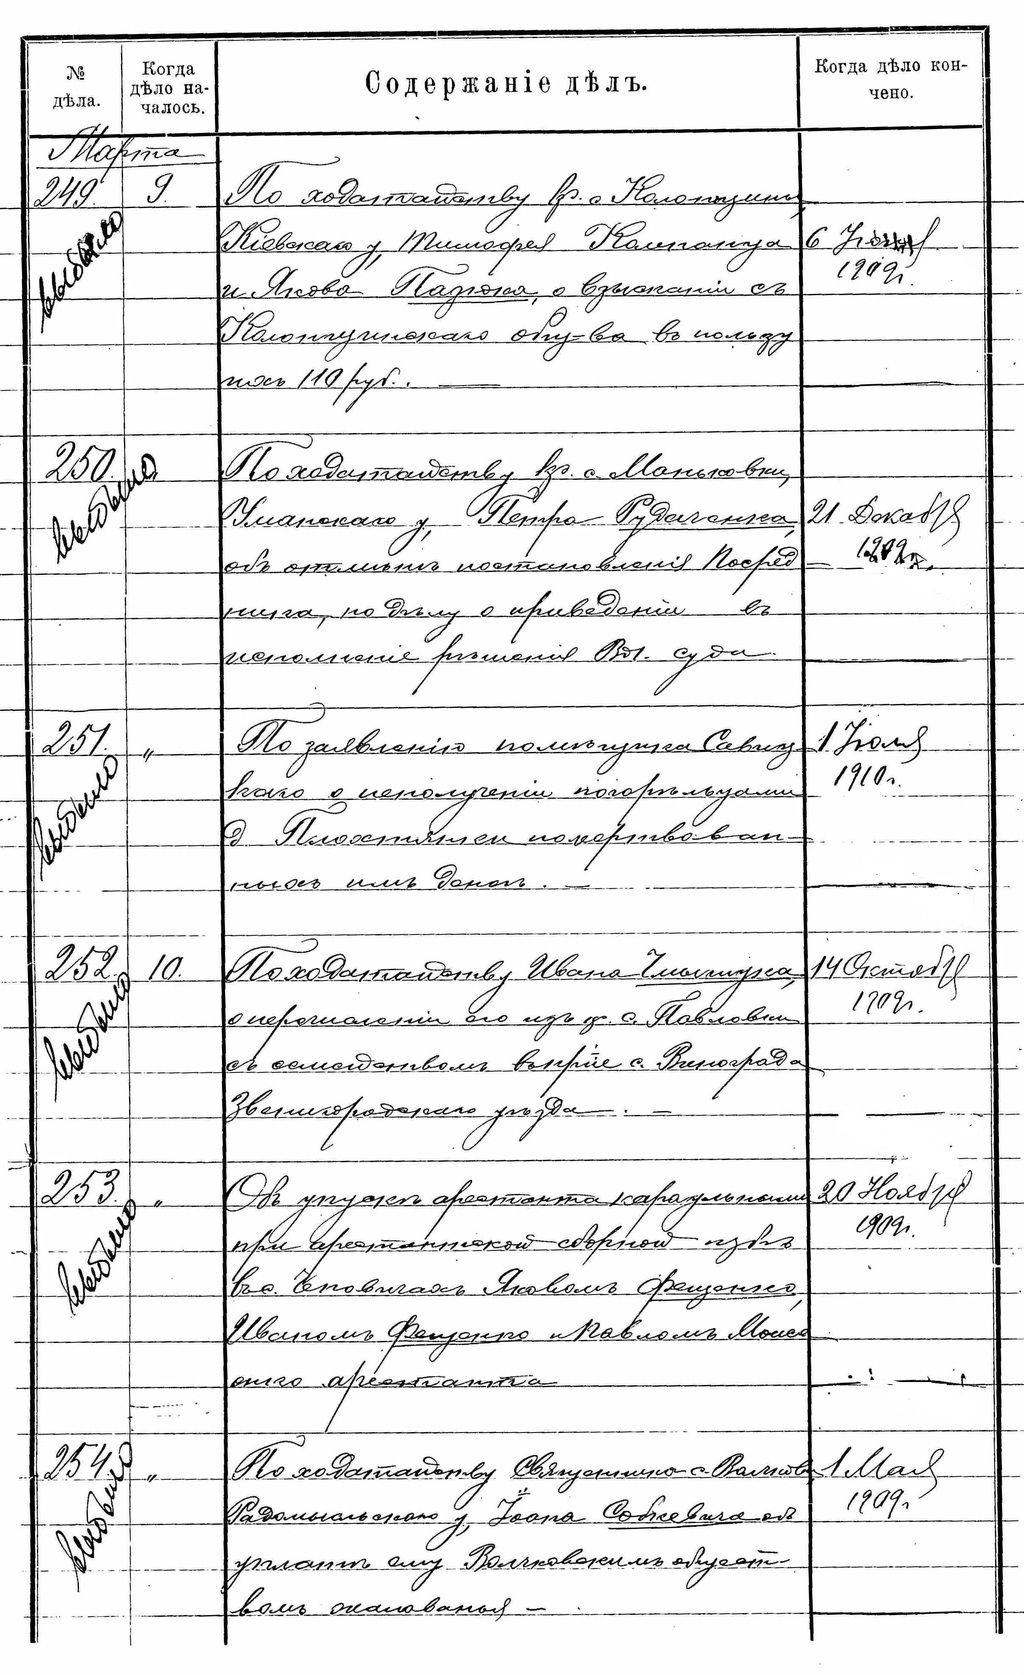 № дѣла.
Когда дѣло началось.
Содержаніе дѣлъ.
Когда дѣло кончено.
Марта
249. 9. По ходатайству кр. с
Кіевскаго у, Тимофея 6 Іюня
и Якова о взысканіи съ 1909г.
общ-ва въ пользу
ихъ 110 руб. —
выбыло
250. По ходатайству кр. с. Маньковки,
Уманскаго у, Петра Рудаченка, 21 Декабря
объ отмѣнѣ постановленія Посред 1909г.
ника, по дѣлу о приведеніи въ
исполненіе рѣшенія Вол. суда.
выбыло
251. „ По заявленію помѣщика Савиц 1 Іюля
каго о неполученіи погорѣльцами 1910г.
д. пожертвован-
ныхъ имъ денегъ. —
выбыло
252. 10. По ходатайству Ивана 14 Октября
о перечисленіи его изъ кр. с. Павловки 1909г.
съ семействомъ въ кр-не с. Винограда
Звенигородскаго уѣзда. —
выбыло
253. „ Объ упускѣ арестанта караульными 20 Ноября
при арестантской сборной избѣ 1909г.
въ с. Чеповичахъ Яковомъ Фещенко,
Иваномъ Фещенко и Павломъ
арестанта
выбыло
254. „ По ходатайству Священника с. 1 Мая
Радомысльскаго у, Іоана Собкевича объ 1909г.
уплатѣ ему Волчковскимъ общест-
вомъ жалованья —
выбыло